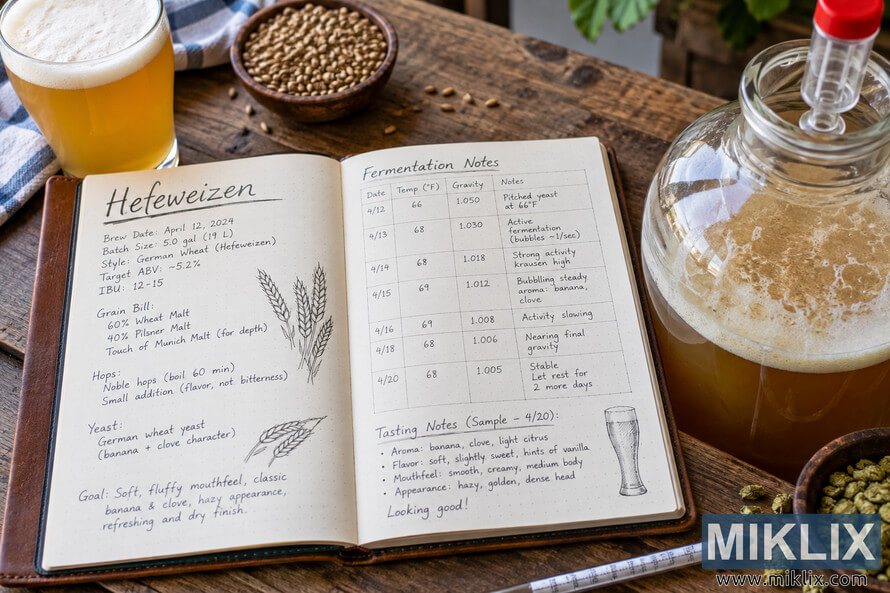 Hefeweizen
Brew Date: April 12, 2024
Batch Size: 5.0 gal (19 L)
Style: German Wheat (Hefeweizen)
Target ABV: ~5.2%
IBU: 12-15
Grain Bill:
60% Wheat Malt
40% Pilsner Malt
Touch of Munich Malt (for depth)
Hops:
Noble hops (boil 60 min)
Small addition (flavor, not bitterness)
Yeast:
German wheat yeast
(banana + clove character)
Goal: Soft, fluffy mouthfeel, classic
banana & clove, hazy appearance,
refreshing and dry finish.
Fermentation Notes
Date Temp (°F) Gravity Notes
4/12 66 1.050 Pitched yeast
at 66°F
4/13 68 1.030 Active
fermentation
(bubbles ~1/sec)
4/14 68 1.018 Strong activity
krausen high
4/15 69 1.012 Bubblling steady
aroma: banana,
clove
4/16 69 1.008 Activity slowing
4/18 68 1.006 Nearing final
gravity
4/20 68 1.005 Stable
Let rest for
2 more days
Tasting Notes (Sample - 4/20):
• Aroma: banana, clove, light citrus
• Flavor: soft, slightly sweet, hints of vanilla
• Mouthfeel: smooth, creamy, medium body
• Appearance: hazy, golden, dense head
Looking good!
MIKLIX
www.miklix.com